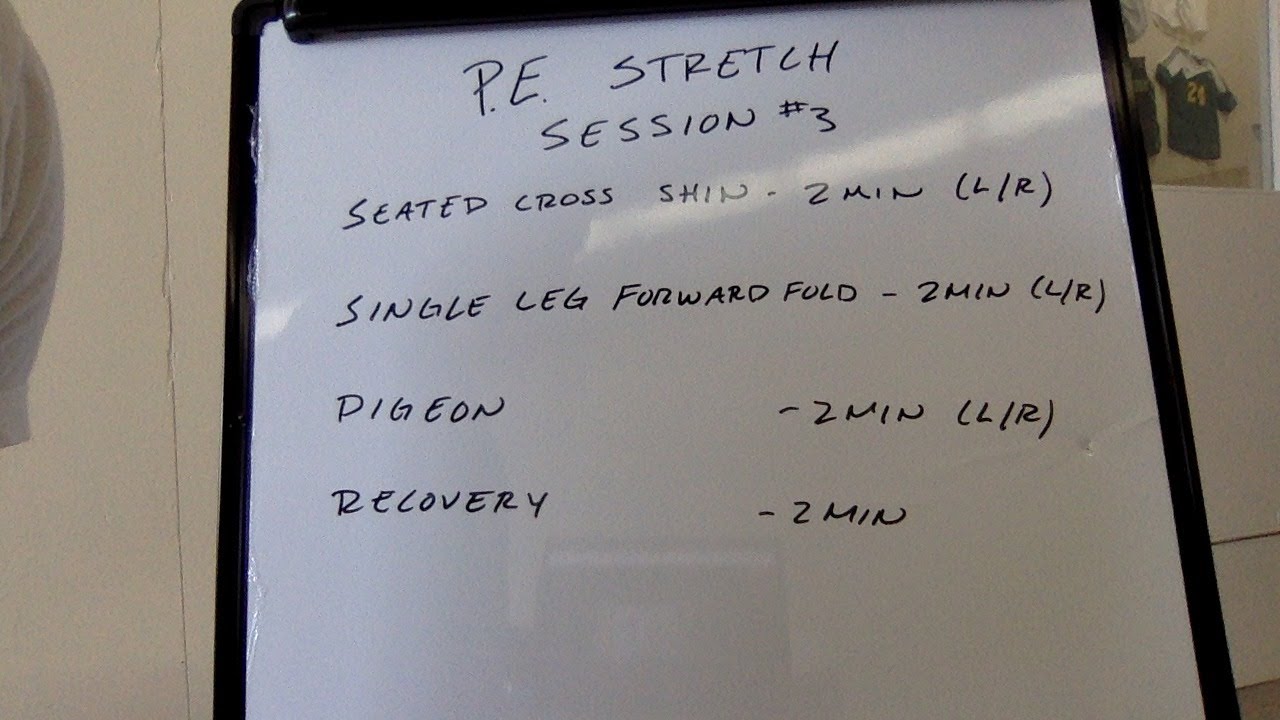 P.E. STRETCH
SESSION #3
SEATED CROSS SHIN - 2 MIN (L/R)
SINGLE LEG FORWARD FOLD - 2 MIN (L/R)
PIGEON - 2 MIN (L/R)
RECOVERY - 2 MIN